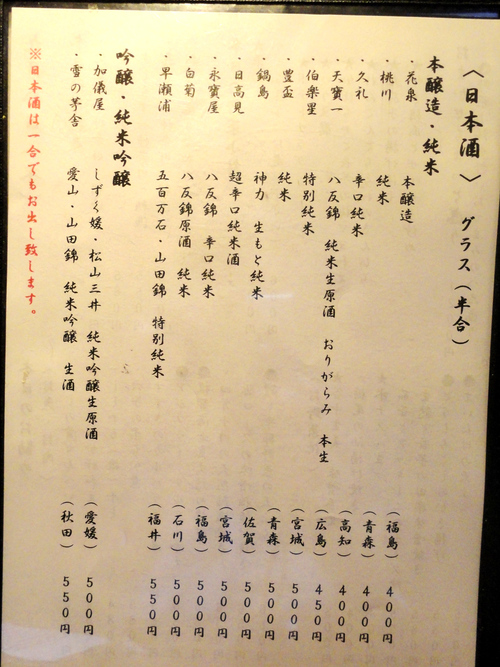 〈日本酒〉 グラス（半合）
本醸造・純米
・花泉 本醸造 （福島） 400円
・桃川 純米 （青森） 400円
・久礼 辛口純米 （高知） 400円
・天寶一 八反錦 純米生原酒 おりがらみ 本生 （広島） 450円
・伯楽星 特別純米 （宮城） 500円
・豊盃 純米 （青森） 500円
・鍋島 神力 生もと純米 （佐賀） 500円
・日高見 超辛口純米酒 （宮城） 500円
・永寶屋 八反錦 辛口純米 （福島） 500円
・白菊 八反錦原酒 純米 （石川） 500円
・早瀬浦 五百万石・山田錦 特別純米 （福井） 550円
吟醸・純米吟醸
・加儀屋 しずく媛・松山三井 純米吟醸生原酒 （愛媛） 500円
・雪の茅舎 愛山・山田錦 純米吟醸 生酒 （秋田） 550円
※日本酒は一合でもお出し致します。